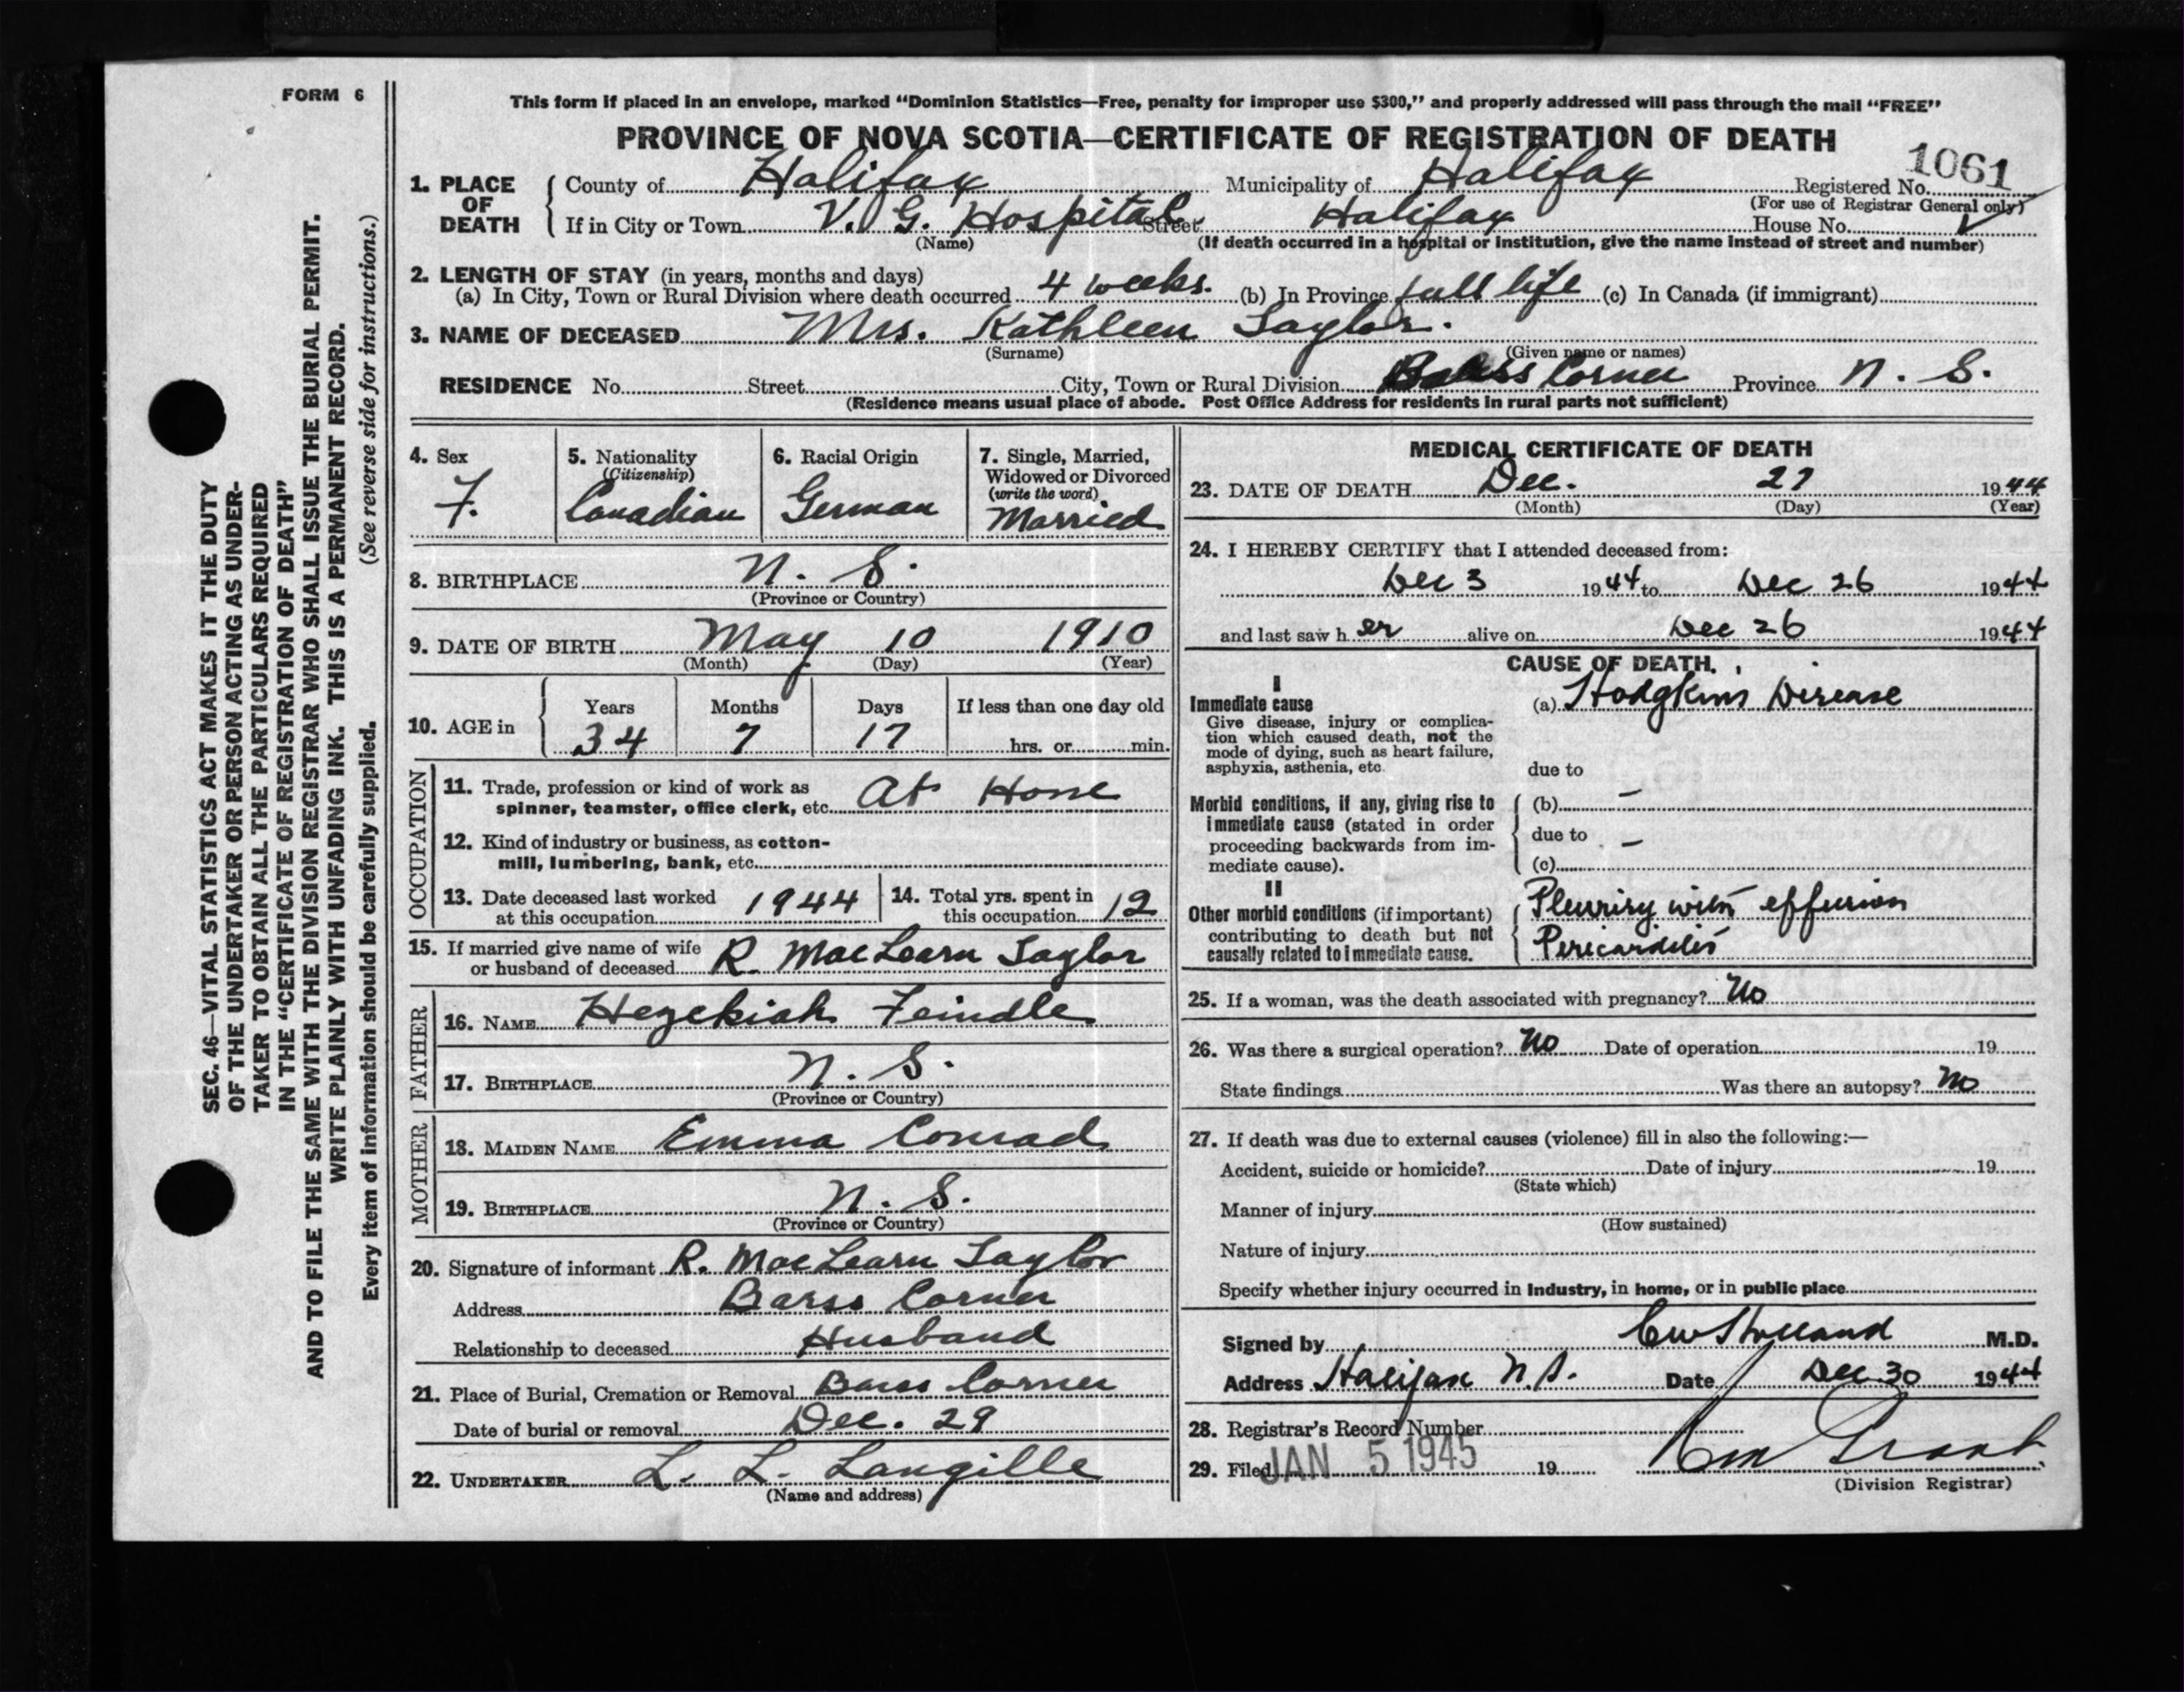 FORM 6
This form if placed in an envelope, marked "Dominion Statistics—Free, penalty for improper use $300," and properly addressed will pass through the mail "FREE"
PROVINCE OF NOVA SCOTIA—CERTIFICATE OF REGISTRATION OF DEATH
1061
1. PLACE OF DEATH County of Halifax Municipality of Halifax Registered No.
(For use of Registrar General only)
If in City or Town V. G. Hospital Street Halifax House No.
(Name) (If death occurred in a hospital or institution, give the name instead of street and number)
2. LENGTH OF STAY (in years, months and days)
(a) In City, Town or Rural Division where death occurred 4 weeks. (b) In Province full life (c) In Canada (if immigrant)
3. NAME OF DECEASED Mrs. Kathleen Taylor.
(Surname) (Given name or names)
RESIDENCE No. Street City, Town or Rural Division Barss Corner Province N. S.
(Residence means usual place of abode. Post Office Address for residents in rural parts not sufficient)
4. Sex
F.
5. Nationality
(Citizenship)
Canadian
6. Racial Origin
German
7. Single, Married,
Widowed or Divorced
(write the word)
Married
8. BIRTHPLACE N. S.
(Province or Country)
9. DATE OF BIRTH May 10 1910
(Month) (Day) (Year)
10. AGE in Years Months Days If less than one day old
34 7 17 hrs. or min.
OCCUPATION
11. Trade, profession or kind of work as
spinner, teamster, office clerk, etc. At Home
12. Kind of industry or business, as cotton-
mill, lumbering, bank, etc.
13. Date deceased last worked
at this occupation 1944
14. Total yrs. spent in
this occupation 12
15. If married give name of wife
or husband of deceased R. MacLearn Taylor
FATHER
16. NAME Hezekiah Feindle
17. BIRTHPLACE N. S.
(Province or Country)
MOTHER
18. MAIDEN NAME Emma Conrad
19. BIRTHPLACE N. S.
(Province or Country)
20. Signature of informant R. MacLearn Taylor
Address Barss Corner
Relationship to deceased Husband
21. Place of Burial, Cremation or Removal Barss Corner
Date of burial or removal Dec. 29
22. UNDERTAKER L. L. Langille
(Name and address)
MEDICAL CERTIFICATE OF DEATH
23. DATE OF DEATH Dec. 27 1944
(Month) (Day) (Year)
24. I HEREBY CERTIFY that I attended deceased from:
Dec 3 1944 to Dec 26 1944
and last saw her alive on Dec 26 1944
CAUSE OF DEATH.
I
Immediate cause
Give disease, injury or complica-
tion which caused death, not the
mode of dying, such as heart failure,
asphyxia, asthenia, etc.
(a) Hodgkins Disease
due to
Morbid conditions, if any, giving rise to
immediate cause (stated in order
proceeding backwards from im-
mediate cause).
(b) –
due to –
(c)
II
Other morbid conditions (if important)
contributing to death but not
causally related to immediate cause.
Pleurisy with effusion
Pericarditis
25. If a woman, was the death associated with pregnancy? No
26. Was there a surgical operation? No Date of operation 19
State findings Was there an autopsy? No
27. If death was due to external causes (violence) fill in also the following:—
Accident, suicide or homicide? Date of injury 19
(State which)
Manner of injury
(How sustained)
Nature of injury
Specify whether injury occurred in industry, in home, or in public place
Signed by C W Holland M.D.
Address Halifax N.S. Date Dec 30 1944
28. Registrar's Record Number
29. Filed JAN 5 1945 19
Grant
(Division Registrar)
SEC. 46—VITAL STATISTICS ACT MAKES IT THE DUTY
OF THE UNDERTAKER OR PERSON ACTING AS UNDER-
TAKER TO OBTAIN ALL THE PARTICULARS REQUIRED
IN THE "CERTIFICATE OF REGISTRATION OF DEATH"
AND TO FILE THE SAME WITH THE DIVISION REGISTRAR WHO SHALL ISSUE THE BURIAL PERMIT.
WRITE PLAINLY WITH UNFADING INK. THIS IS A PERMANENT RECORD.
Every item of information should be carefully supplied. (See reverse side for instructions.)